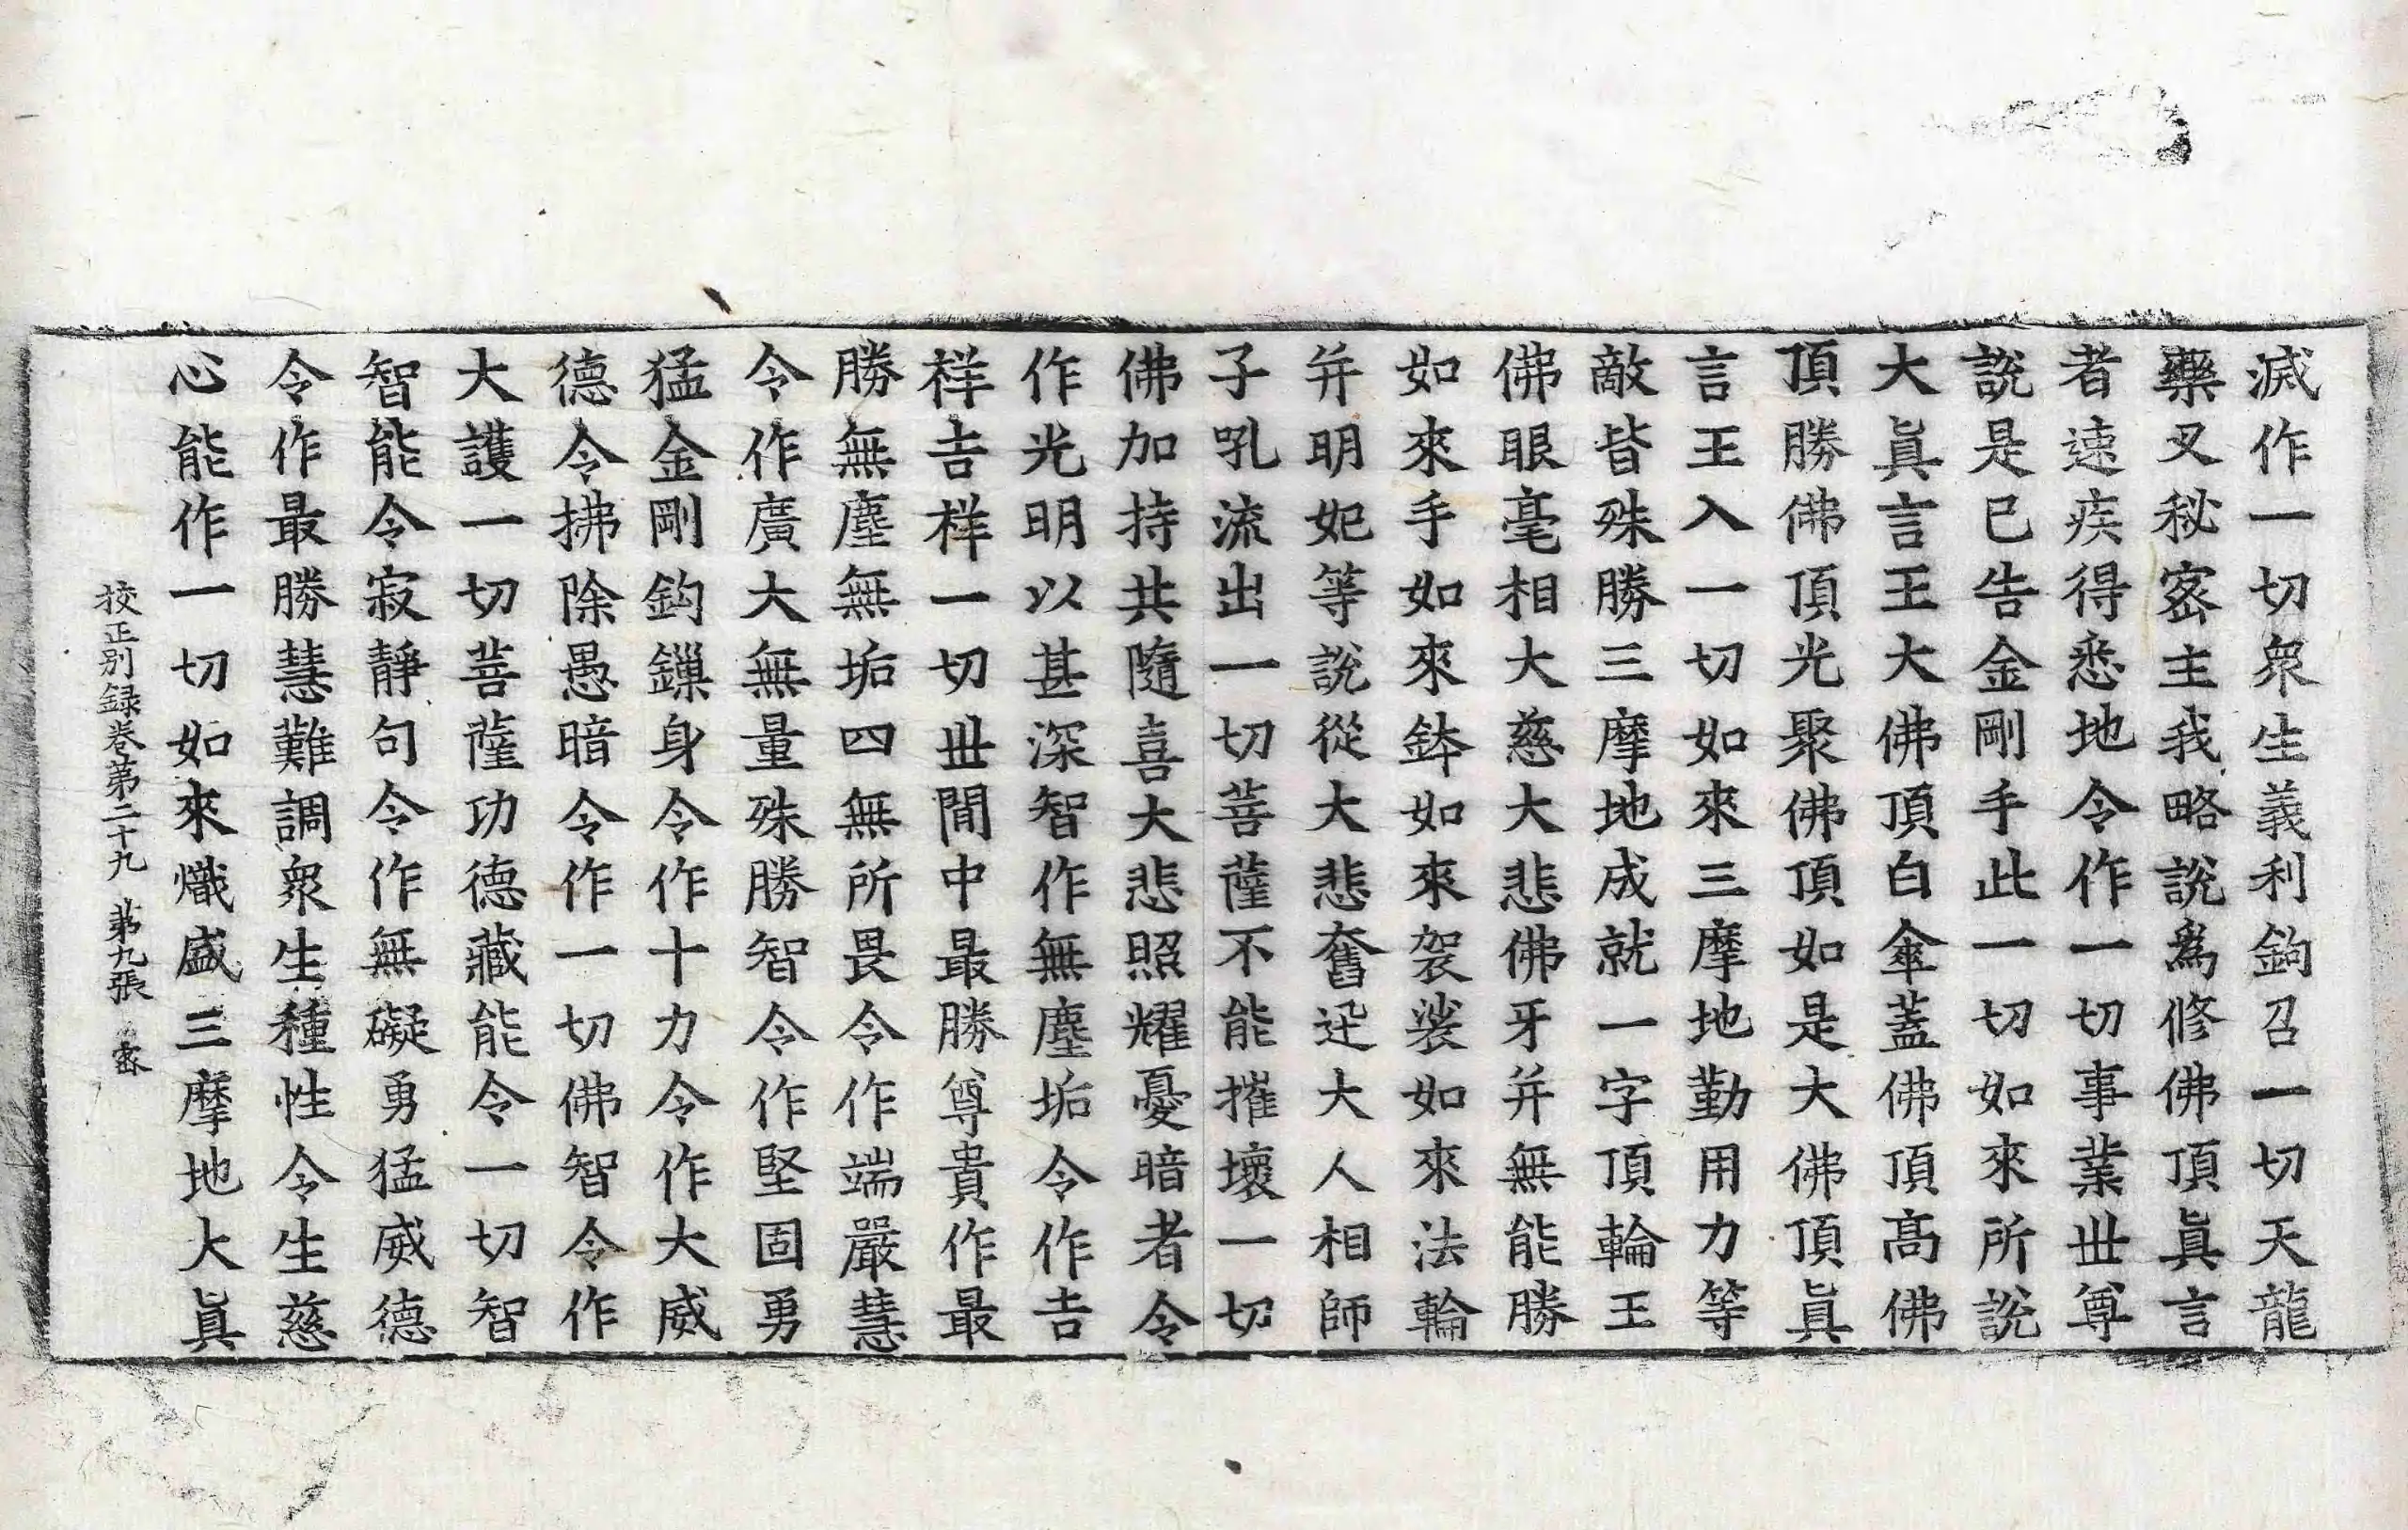 滅作一切衆生義利鉤召一切天龍
藥叉秘宻主我略說爲修佛頂眞言
者速疾得悉地令作一切事業丗尊
說是已告金剛手此一切如來所說
大眞言王大佛頂白傘蓋佛頂髙佛
頂勝佛頂光聚佛頂如是大佛頂眞
言王入一切如來三摩地勤用力等
敵皆殊勝三摩地成就一字頂輪王
佛眼毫相大慈大悲佛牙并無能勝
如來手如來鉢如來袈裟如來法輪
并明妃等說從大悲奮迅大人相師
子吼流出一切菩薩不能摧壞一切
佛加持共隨喜大悲照耀憂暗者令
作光明以甚深智作無塵垢令作吉
祥吉祥一切丗間中最勝尊貴作最
勝無塵無垢四無所畏令作端嚴慧
令作廣大無量殊勝智令作堅固勇
猛金剛鉤鏁身令作十力令作大威
德令拂除愚暗令作一切佛智令作
大護一切菩薩功德藏能令一切智
智能令寂靜句令作無礙勇猛威德
令作最勝慧難調衆生種性令生慈
心能作一切如來熾盛三摩地大眞
挍正别録卷苐二十九 苐九張 宻